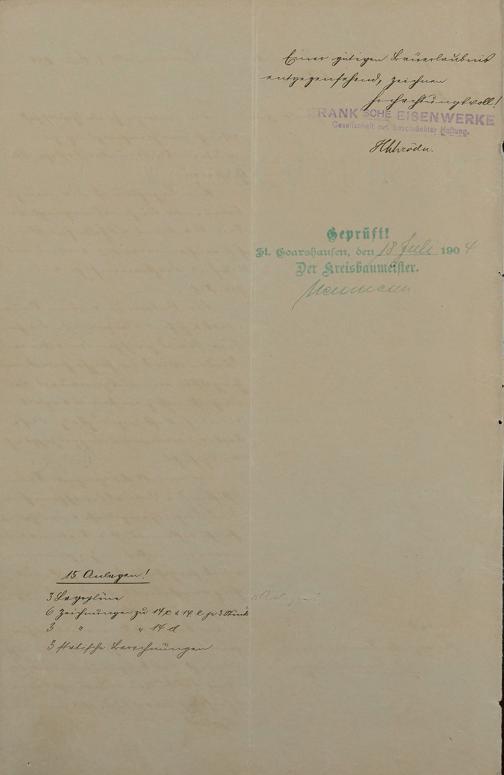 Einer gütigen Bauerlaubnis
entgegensehend, zeichnen
hochachtungsvoll!
FRANK'SCHE EISENWERKE
Gesellschaft mit beschränkter Haftung.
Geprüft!
St. Goarshausen, den 18 Juli 1904
Der Kreisbaumeister.
15 Anlagen!
3 Lagepläne
6 Zeichnungen zu 14 c u 14 e je 3 Stück
3 " " 14 d
3 statische Berechnungen